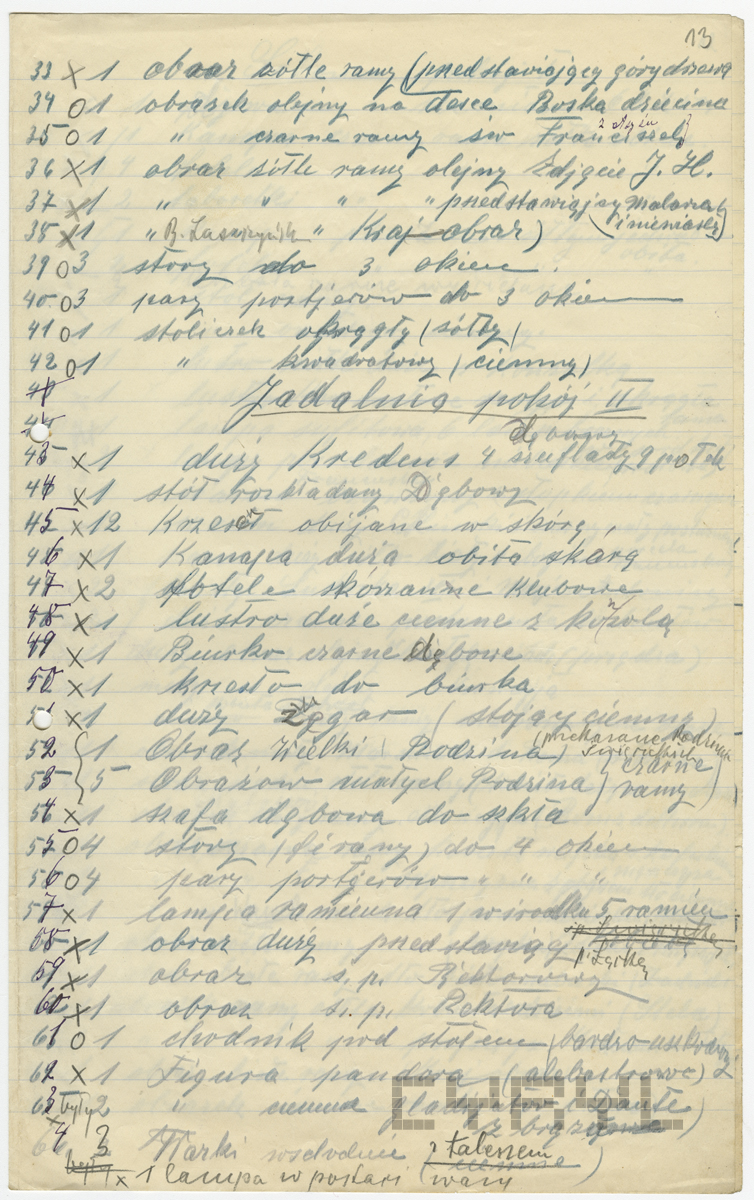 13
33 x 1 obraz żółte ramy (przedstawiający góry drzewa
34 o 1 obrazek olejny na desce Boska dziecina
35 o 1 " czarne ramy św Franciszek
36 x 1 obraz żółte ramy olejny Zdjęcie J. H.
37 x 1 " " " " przedstawiający malarza
38 x 1 " " Kraj obraz) (i niewiastę)
39 o 3 story do 3 okien
40 o 3 pary portjerów do 3 okien
41 o 1 stoliczek okrągły (żółty)
42 o 1 " kwadratowy (ciemny)
Jadalnia pokój II
dębowy
43 x 1 duży Kredens 4 szuflady 9 połek
44 x 1 stół rozkładany Dębowy
45 x 12 Krzeseł obijane w skórę,
46 x 1 Kanapa duża obita skórą
47 x 2 fotele skórzanne Klubowe
48 x 1 lustro duże ciemne z konzolą
49 x 1 Biurko czarne dębowe
50 x 1 krzesło do biurka
51 x 1 duży zegar (stojący ciemny)
52 1 Obraz Wielki (Rodzina) (przekazane Rodzinie
53 5 Obrazów małych Rodzina) czarne ramy)
54 x 1 szafa dębowa do szkła
55 o 4 story (firany) do 4 okien
56 o 4 pary portjerów " " "
57 x 1 lampa ramienna 1 w środku 5 ramien
58 x 1 obraz duży przedstawiający
59 x 1 obraz ś.p. Rektorowy
60 x 1 obraz ś.p. Rektora
61 o 1 chodnik pod stołem (bardzo
62 x 1 Figura pandora (alebastrowa)
63 były 2 " ciemna gladjator i Dante)
z brązu
64 3 Wazki wschodnie
x 1 lampa w postaci wazy
CYRYL